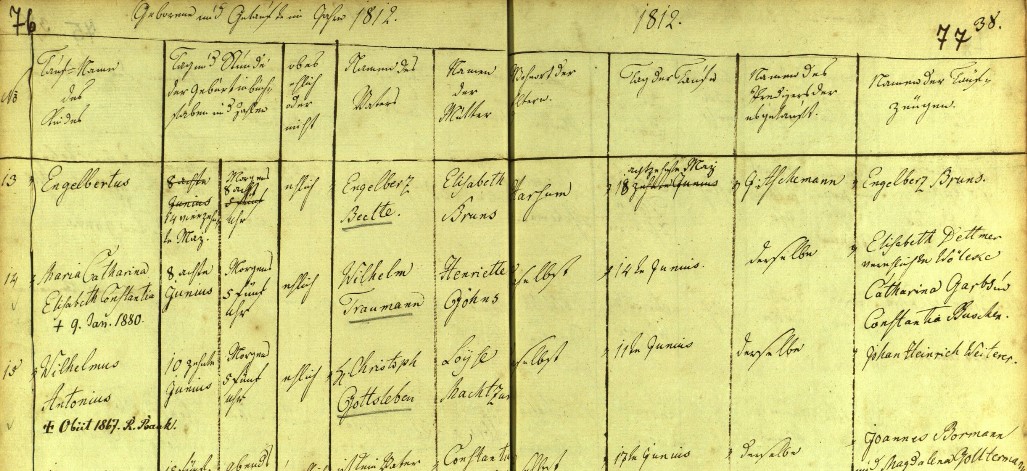 76
Geborene und Getaufte im Jahre 1812.
1812.
77 38.
No
Tauf-Namen
des
Kindes
Tag und Stunde
der Geburt in Buch-
staben und Zahlen
obes
ehlich
oder
nicht
Namen des
Vaters
Namen
der
Mutter
Wohnort der
Eltern.
Tag der Taufe
Namen des
Predigers der
es getauft.
Namen der Tauf-
zeugen.
13
Engelbertus
8 achte
Junius
14 vierzehn-
te May.
Morgens
8 acht
5 fünf
Uhr
ehlich
Engelberz
Beelte.
Elisabeth
Bruns
Harsum
achtzehnte May
18 Junius
Engelberz Bruns.
14
Maria Catharina
Elisabeth Constantia
+ 9. Jan. 1880.
8 achte
Junius
Morgens
5 fünf
Uhr
ehlich
Wilhelm
Traumann
Henriette
Göhns
daselbst
14te Junius.
derselbe
Elisabeth Dettmer
Catharina Garbs und
Constantia Buschen.
15
Wilhelmus
Antonius
+ Obiit 1867. R. Bank.
10 zehnte
Junius
Morgens
5 fünf
Uhr
ehlich
Christoph
Gottsleben
Loyse
Machtzum
daselbst
11te Junius
derselbe
Johan Heinrich Weiterer.
abends
Constantia
daselbst
17te Junius
derselbe
Joannes Bormann
und Magdalena Gollterman